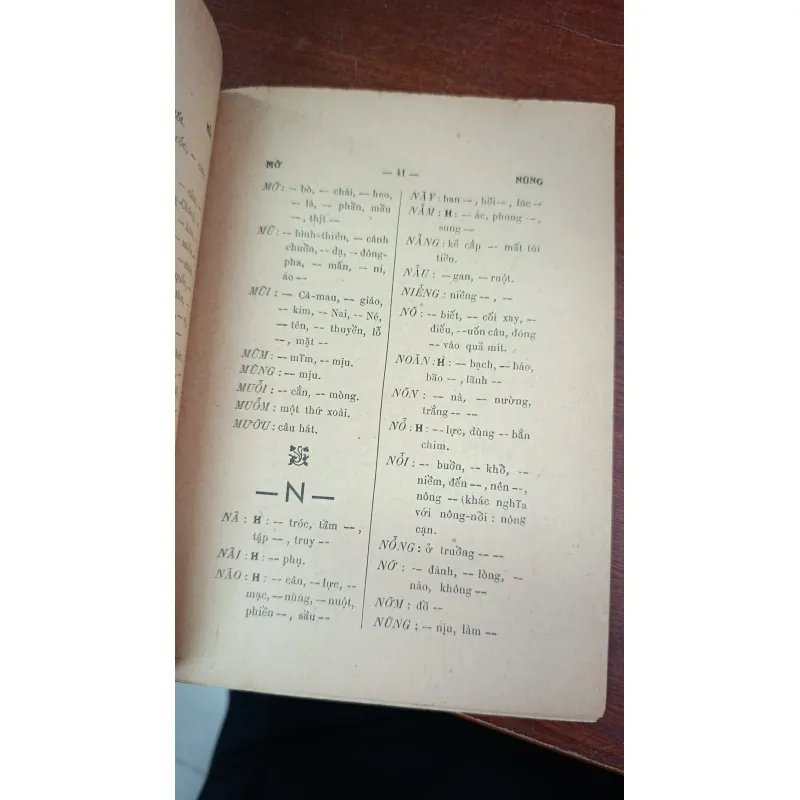 MỠ
— 41 —
NŨNG
MỠ : -- bò, -- chài, -- heo,
-- lá, -- phần, mần
-- , thịt --
MŨ : -- bình-thiên, -- cánh
chuồn, -- dạ, -- đông-
pha, -- mấn, -- ni,
áo --
MŨI : -- Cà-mau, -- giáo,
-- kim, -- Nai, -- Né,
-- tên, -- thuyền, lỗ
-- , mặt --
MŨM : -- mĩm, -- mịu.
MŨNG : -- mịu.
MUỖI : -- cắn, -- mòng.
MUỖM : một thứ xoài.
MƯỠU : câu hát.
— N —
NÃ : H : -- tróc, tầm -- ,
tập -- , truy --
NÃI : H : -- phụ.
NÃO : H : -- cân, -- lực, --
mạc, -- nùng, -- nuột,
phiền -- , sầu --
NÃY : ban -- , hồi -- , lúc --
NẪM : H : -- ác, phong --,
sung --
NẴNG : kẻ cắp -- mất túi
tiền.
NẪU : -- gan, -- ruột.
NIỄNG : niềng -- , --
NÕ : -- biết, -- cối xay, --
điếu, --uốn câu, đóng
-- vào quả mít.
NOÃN : H : -- bạch, -- bào,
bão -- , lãnh --
NÕN : -- nà, -- nường,
trắng -- --
NỖ : H : -- lực, dùng -- bắn
chim.
NỖI : -- buồn, -- khổ, --
niềm, đến -- , nên --,
nông -- (khác nghĩa
với nông-nổi : nông
cạn.
NỖNG : ở truồng -- --
NỠ : -- đành, -- lòng, --
nào, không --
NỠM : đồ --
NŨNG : -- nịu, làm --